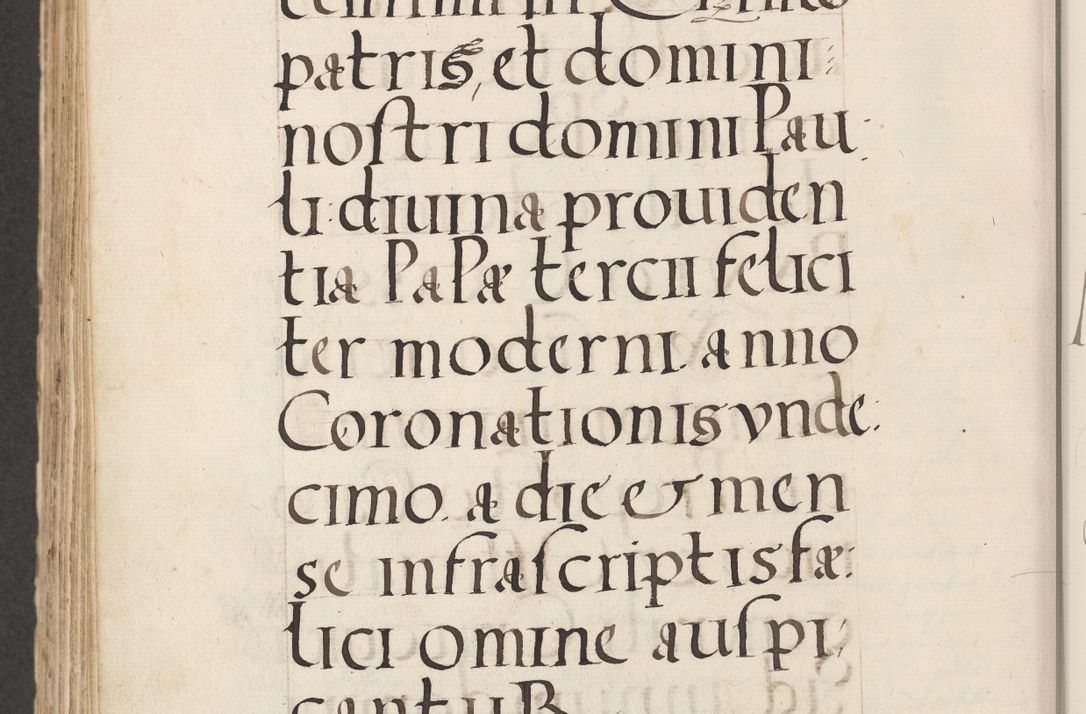 patris, et domini:
noſtri domini Pau:
li: diuina prouiden
tia PaPæ tercii felici
ter moderni. anno
Coronationis vnde:
cimo. a die et men
se infraſcriptis fæ:
lici omine auſpi:
cantuR